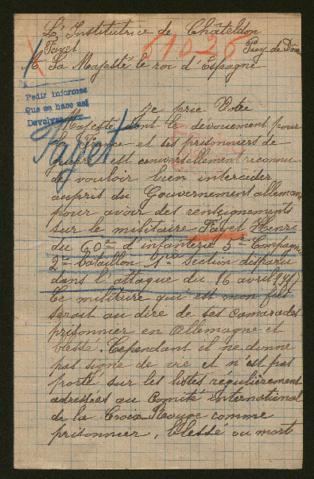 L'Institutrice de Châteldon
Fayet 51026 Puy de Dôme
A Sa Majesté le roi d'Espagne
Pedir informes
Que se hace así
Je prie Votre
Majesté dont le dévouement pour
la France et ses prisonniers de
guerre est universellement reconnu
de vouloir bien intercéder
auprès du Gouvernement allemand
pour avoir des renseignements
sur le militaire Fayet Henri
du 60e d'infanterie 5e Compagnie
2e bataillon 1re Section disparu
dans l'attaque du 16 avril 1917
Fayet
Ce militaire qui est mon fils
serait au dire de ses camarades
prisonnier en Allemagne et
blessé. Cependant il ne donne
pas signe de vie et n'est pas
porté sur les listes régulièrement
adressées au Comité International
de la Croix Rouge comme
prisonnier, blessé ou mort